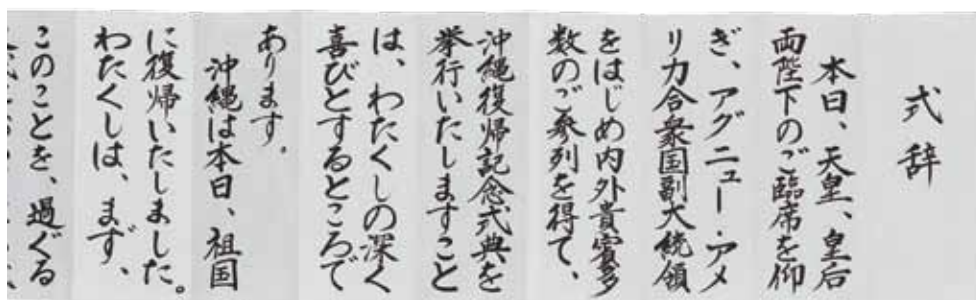 式辞
本日、天皇、皇后
両陛下のご臨席を仰
ぎ、アグニュー・アメ
リカ合衆国副大統領
をはじめ内外貴賓多
数のご参列を得て、
沖縄復帰記念式典を
挙行いたしますこと
は、わたくしの深く
喜びとするところで
あります。
沖縄は本日、祖国
に復帰いたしました。
わたくしは、まず、
このことを、過ぐる